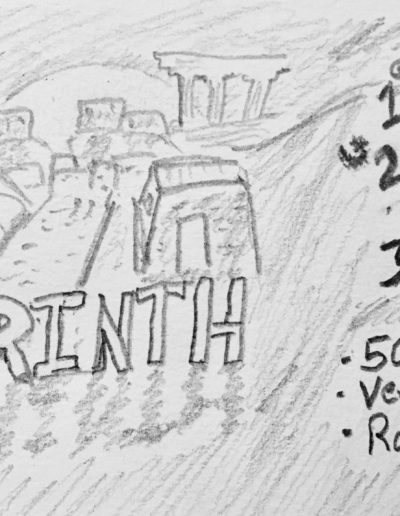 RINTH
1
2
3
· 50
· Ve
· Ro